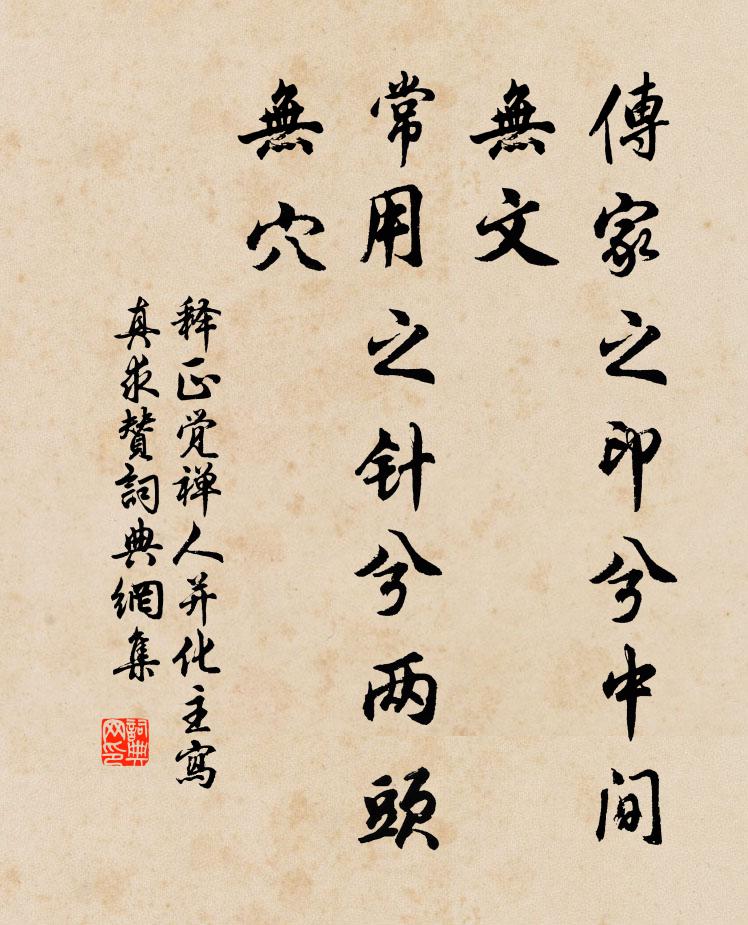 傳家之印兮中间
無文
常用之针兮两頭
無穴
释正觉禅人并化主寫
真求贊詞典網集
詞典
网印